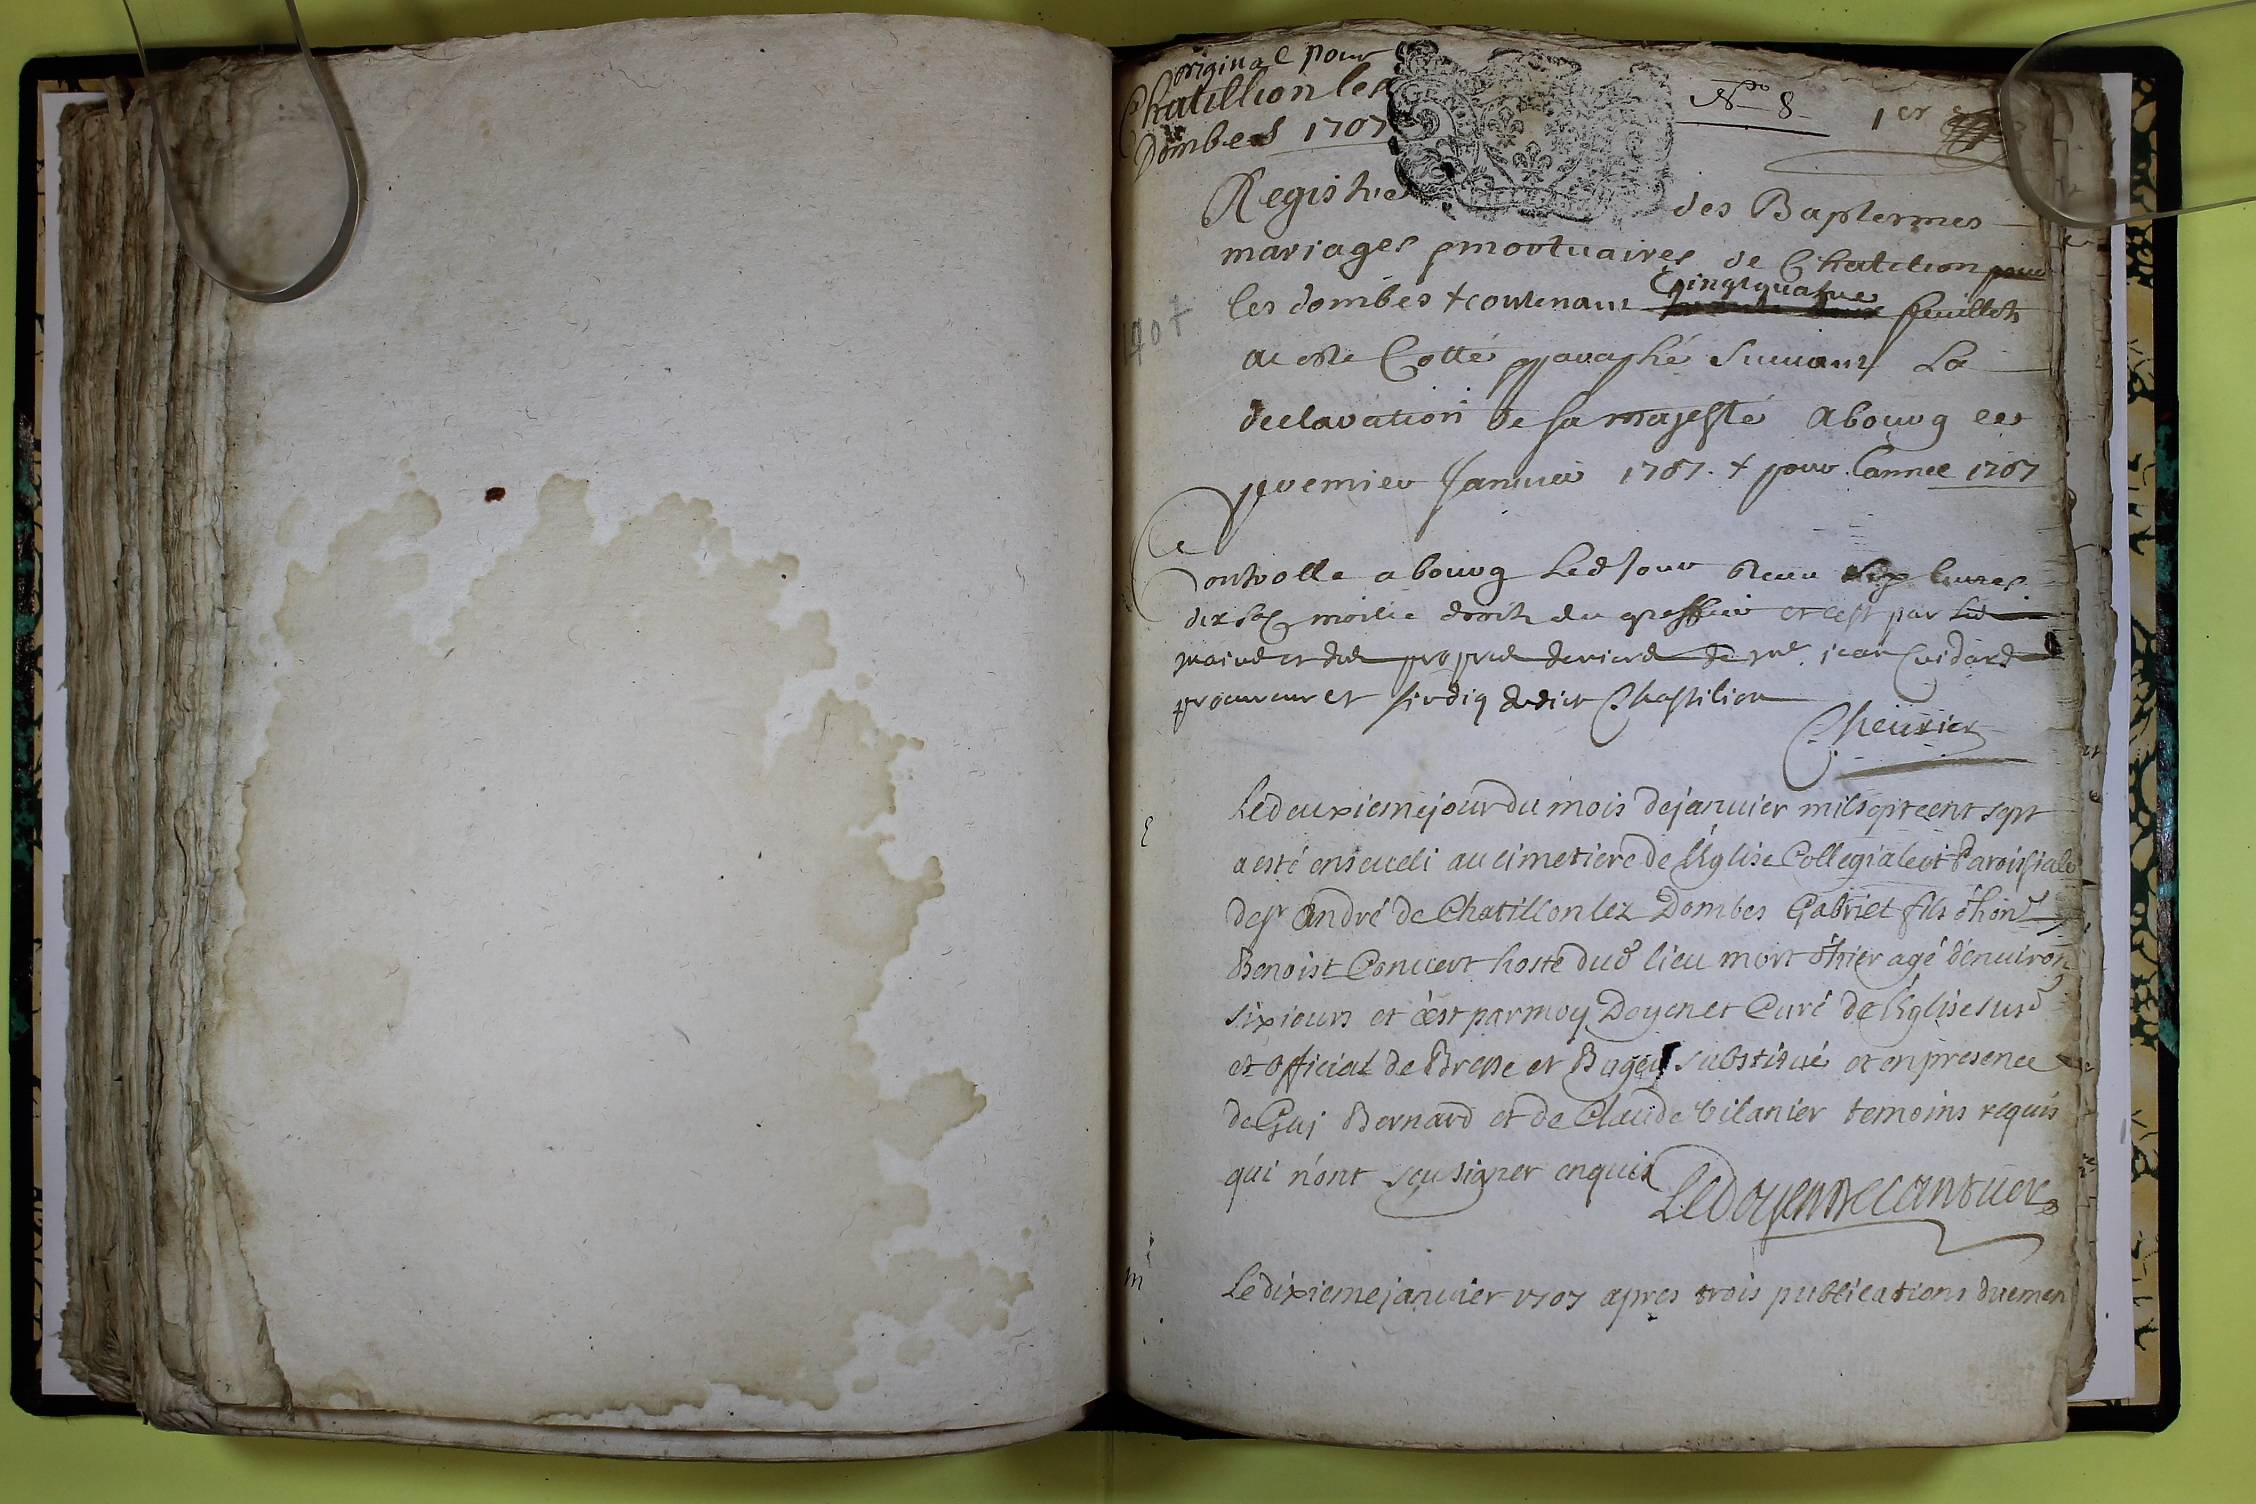 original pour
Chatillion les
Dombes 1707
No 8
1er
Registre des Baptesmes
mariages & mortuaires de Chatilion
les dombes + contenant vingtquatre feuillets
Cotté & paraphé Suiuant La
declaration de sa majesté a bourg le
premier Januier 1707. + pour L'annee 1707
407
Controlle a bourg Led Jour Receu livres
dix moitie droits du greffier et cest par les
mains et des propres deniers de me jean Cuidard
procureur et sindiq dudict Chastilion
Cheurier
Le deuxieme jour du mois de januier mil sept cent sept
a esté enseueli au cimetiere de l'Eglise Collegiale et Paroissiale
de st André de Chatillon lez Dombes Gabriel fils d'hon
Benoist Conuert hoste dud lieu mort d'hier agé d'enuiron
six jours et c'est par moy Doyen et Curé de l'Eglise sus
et Official de Bresse et Bugey substitué et en presence
de Guj Bernard et de Claude Vilanier temoins requis
qui n'ont sçeu signer enquis
Le doyen
m
Le dixieme januier 1707 apres trois publications duemen